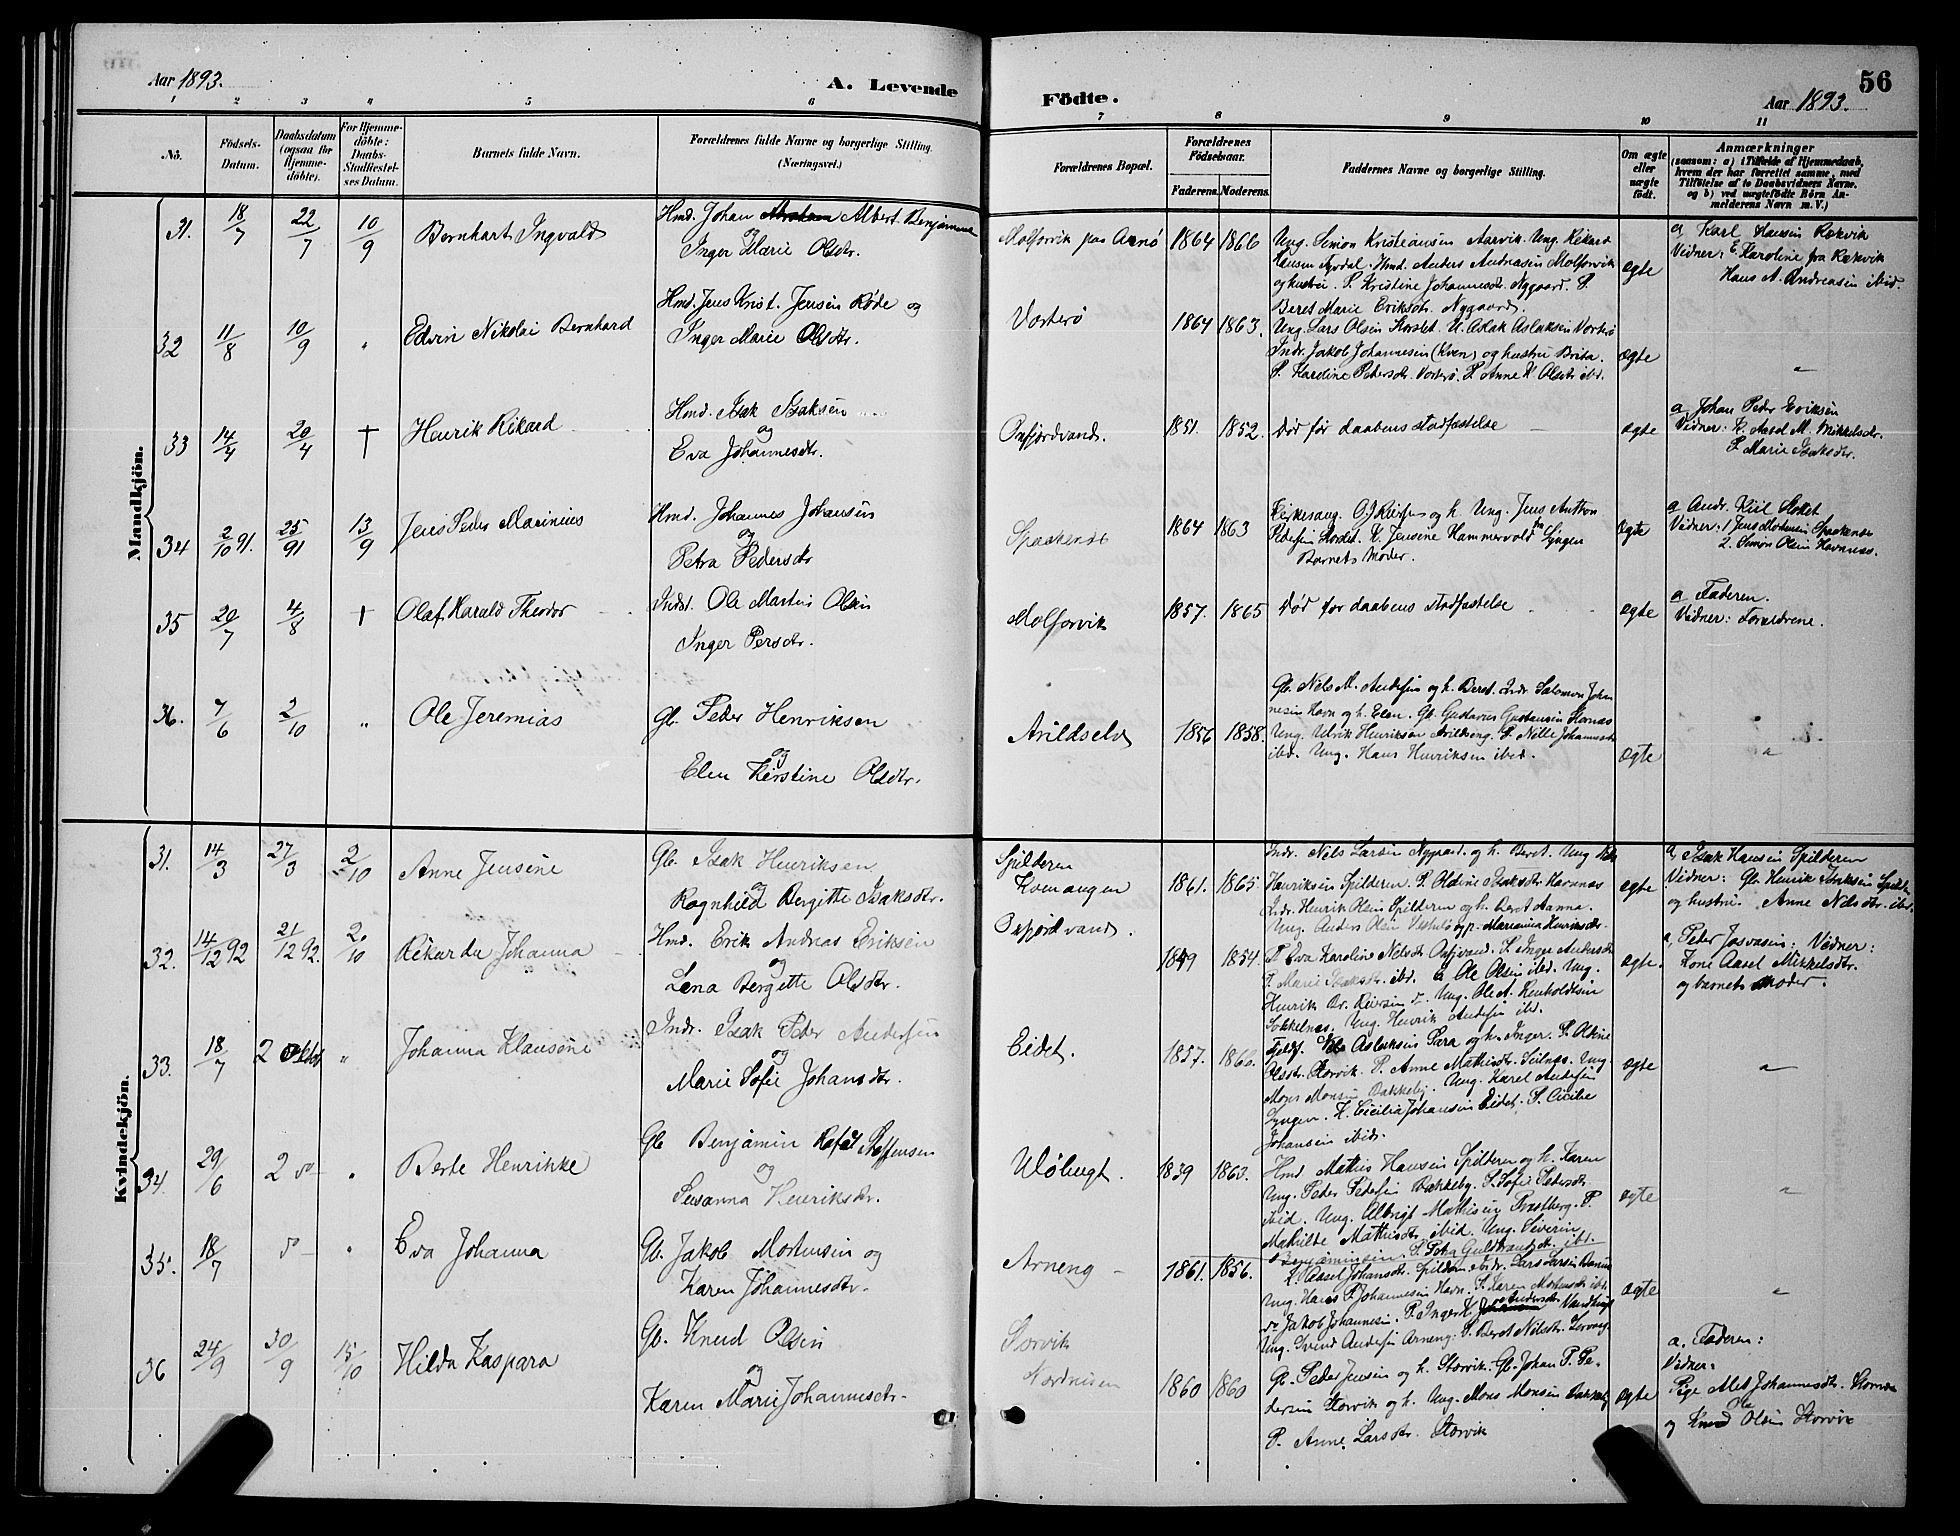 56
Aar 1893.
A. Levende
Födte.
Aar 1893.
1 2 3 4 5 6 7 8 9 10 11
No.
Födsels-
Datum.
Daabsdatum
(ogsaa for
Hjemme-
döbte).
For Hjemme-
döbte:
Daabs-
Stadfæstel-
ses Datum.
Barnets fulde Navn.
Forældrenes fulde Navne og borgerlige Stilling.
(Næringsvei.)
Forældrenes Bopæl.
Forældrenes
Födselsaar.
Faderens. Moderens.
Faddernes Navne og borgerlige Stilling.
Om ægte
eller
uægte
födt.
Anmærkninger
(saasom: a) i Tilfælde af Hjemmedaab,
hvem der har forrettet samme, med
Tilföielse af to Daabsvidners Navne,
og b) ved uægtefödte Börn An-
melderens Navn m. V.)
Mandkjön.
31. 18/7 22/7 10/9 Bernhart Ingvald
Hmd. Johan Albert Benjaminsen
og
Inger Marie Olsdtr.
Molforvik paa Arnø 1864 1866
Ung. Simon Kristiansen Aarvik. Ung. Rikard
Hansen . Hmd. Anders Andreasen Molforvik
og hustru. P. Kristine Johannesdtr. Nygaard. P.
Beret Marie Eriksdtr. Nygaard.
ægte
a Karl Hansen Rekvik
Vidner: E. Karoline fra Rekvik
Hans A. Andreasen ibid.
32 11/8 10/9 " Edvin Nikolai Bernhard
Hmd. Jens Krist. Jensen Røde og
Inger Marie Olsdtr.
Vorterø 1864 1863.
Ung. Lars Olsen Storslet. U. Aslak Aslaksen Vorterø
Indr. Jakob Johannesen (Kven) og hustru Brita.
P. Hardine Petersdtr. Vorterø. P. Anne K. Olsdtr ibd.
ægte
"
33 14/4 20/4 † Henrik Rikard
Hmd. Isak Isaksen
og
Eva Johannesdtr.
Oxfjordvand. 1851. 1852.
Død før daabens stadfæstelse
ægte
a, Johan Peder Eriksen
Vidner: K. Aasel M. Mikkelsdtr.
P. Marie Isaksdtr.
34 2/10 91. 25/91 13/9 Jens Peder Marinius
Hmd. Johannes Johansen
og
Petra Pedersdtr
Spaakenæs 1864 1863
Kirkesang. O. J. og h. Ung. Jens Anthon
Pedersen Storslet. K. Jensine Hammervold fra Lyngen
Barnets Moder.
ægte
a Andr. Kiil
Vidner: 1 Jens Mortensen Spaakenæs
2. Simon Olsen Havnnæs.
35 20/7 4/8 † Olaf Harald Theodor
Indst. Ole Martin Olsen
Inger Persdtr.
Molforvik 1857. 1865
Død for daabens stadfæstelse
ægte
a Faderen.
Vidner: Forældrene.
36. 7/6 2/10 " Ole Jeremias
Gb. Peder Henriksen
og
Elen Kirstine Olsdtr.
Arildselv 1856 1858.
Gb. Nels M. Andersen og h. Beret. Indr. Salomon Johan
nesen Havn og h. Elen. Gb. Gustavus Gustavsen Stornæs
Ung. Ulrik Henriksen Arildseng. P. Nille Johannesdtr
ibid. Ung. Hans Henriksen ibid.
ægte
"
Kvindekjön.
31. 14/3 27/3 2/10 Anne Jensine
Gb. Isak Henriksen
og
Ragnhild Bergitte Isaksdtr.
Spilderen
Kvenangen 1861. 1865
Indr. Nels Larsen Nygaard. og h. Beret. Ung
Henriksen Spilderen. P. Oldine Isaksdtr. Havnæs
Indr. Henrik Olsen Spilderen og h. Beret Hanna.
Ung. Anders Olsen . p. Marianna Henriksdtr.
ægte
a, Isak Hansen Spilderen
Vidner: Gb. Henrik Isaksen Spilder
og hustru. Anne Nelsdtr. ibr.
32. 14/12 92 21/12 92. 2/10 Rikarda Johanna
Hmd. Erik Andreas Eriksen
og
Lena Bergitte Olsdtr.
Oxfjordvand. 1849 1854.
P. Eva Karoline Nelsdtr. Oxfjvand. P. Inger Andersdtr
P. Marie Isaksdtr. ibd. Ole Olsen ibd. Ung.
Henrik Ole A. Renholdtsen
Sokkelnæs. Ung. Henrik Andersen ibr.
ægte.
a, Peder Josvasen: Vidner:
Kone Aasel Mikkelsdtr.
og barnets Moder.
33. 18/7 2 Oktbr " Johanna Klausine
Indr. Isak Peder Andersen
og
Marie Sofie Johansdtr.
Eidet. 1857. 1866.
Fjeldf. Aslaksen Sara og h. Inger. P. Oldine
Olsdtr. Storvik. P. Anne Mathisdtr. Seilnæs. Ung.
Mons Monsen Bakkeby. Ung. Karel Andersen
Lyngen. K. Cicilia Johansen Eidet. P. Cicilie
Johansen ibidr.
ægte
"
34. 29/6 2 do " Berte Henrikke
Gb Benjamin Rafael Steffensen
og
Susanna Henriksdtr.
Uløbugt. 1839 1863.
Hmd. Mathis Hansen Spilderen og h. Karen
Ung. Peder Pedersen Bakkeby. P. Sofie Pedersdtr
ibid. Ung. Albrigt Mathisen . P.
Mathilde Mathisdtr. ibid. Ung. Severin
Benjaminsen. P. Petra ibr.
ægte
"
35. 18/7 do " Eva Johanna
Gb. Jakob Mortensen og
Karen Johannesdtr.
Arneng 1861. 1856.
K. Aasel Johansdtr. Lars Larsen
Ung. Hans P. Johannesen Havn. P. Karen Mortensdtr ibr.
do Jakob Johannesen. P. Inger K. Andersdtr
Ung. Svend Andersen Arneng. P. Beret Nilsdtr.
ægte
"
36 24/9 30/9 15/10 Hilda Kaspara
Gb. Knud Olsen
og
Karen Marie Johannesdtr.
Storvik
Nordreisen 1860 1860
Gb. Peder Jensen og h. Storvik. Gb. Johan P. Pe-
dersen Storvik og h. Ung. Mons Monsen Bakkeby
P. Anne Larsdtr. Storvik
ægte
a. Faderen:
Vidner:
Pige Met Johannesdtr.
og Knud Ole Olsen Storvik